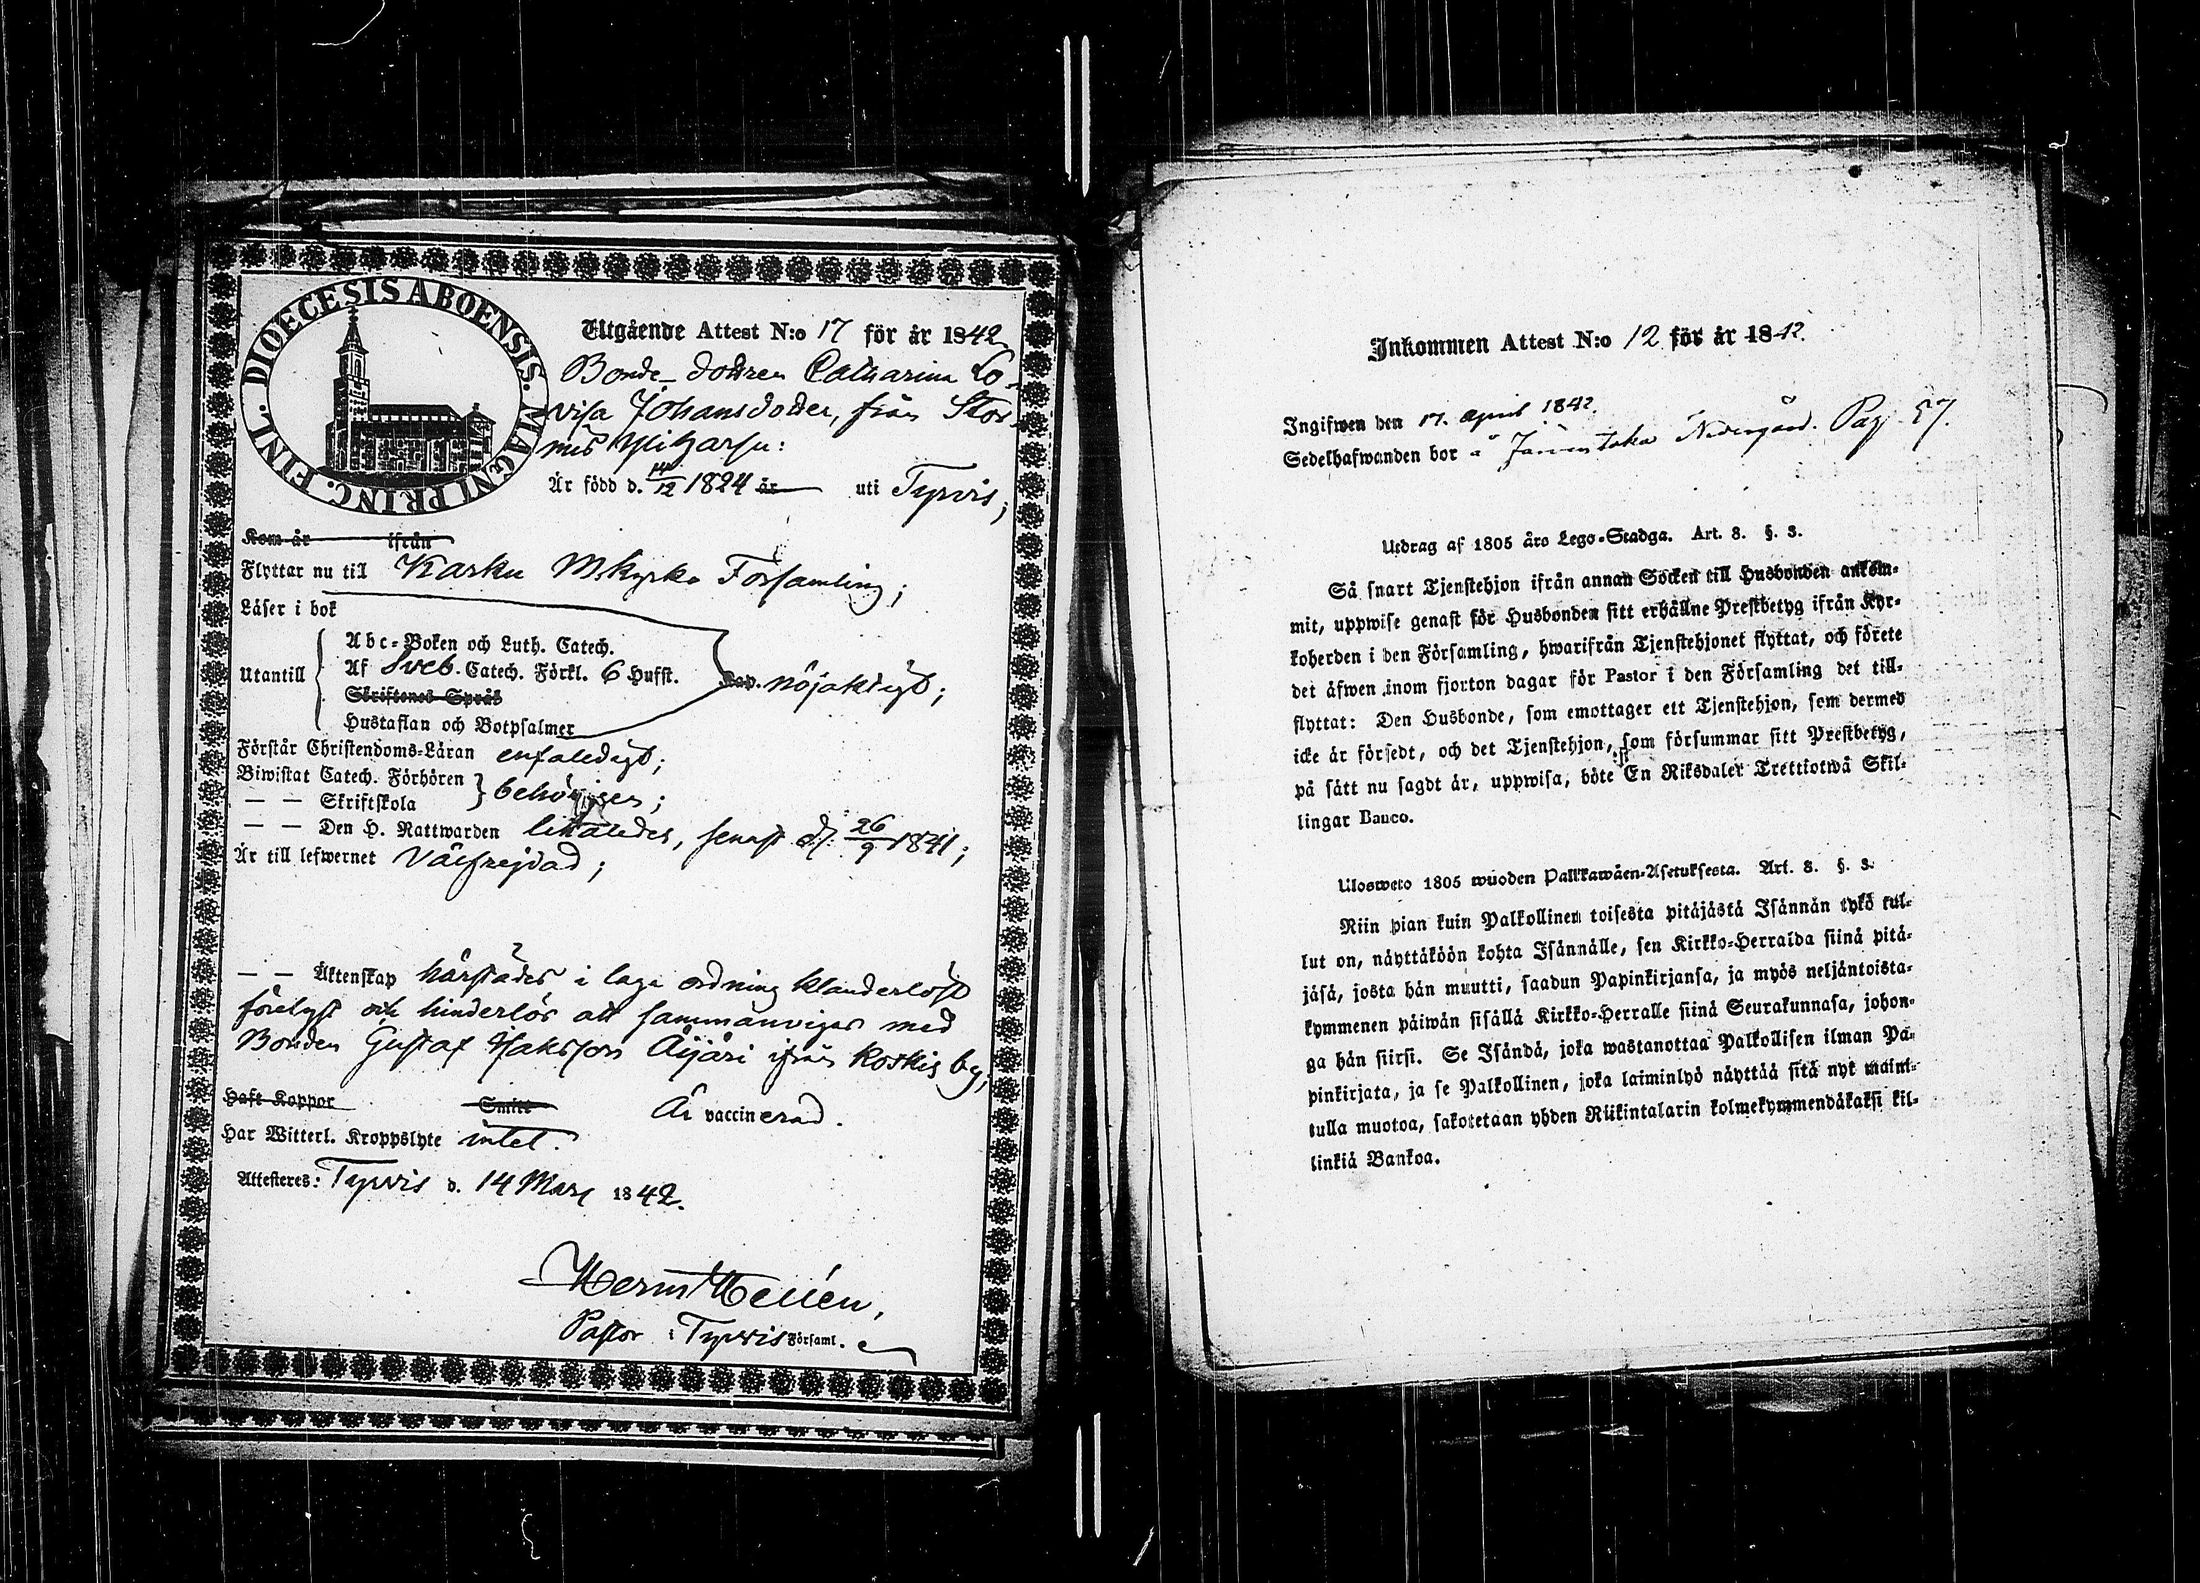 DIOECESIS ABOENSIS. MAGNI PRINC. FINL.
Utgående Attest N:o 17 för år 1842
Bonde-dottren Catharina Lo-
visa Johansdotter, från Stor-
mis
Är född d. 14/12 1824 år uti Tyrvis;
Kom år ifrån
Flyttar nu till Karku M.kyrko Församling;
Läser i bok
Utantill
Abc-Boken och Luth. Catech.
Af Sveb. Catech. Förkl. 6 Hufst.
Skriftenes Språk
Hustaflan och Botpsalmer
Kap. nöjaktigt;
Förstår Christendoms-Läran enfaldigt;
Biwistat Catech. Förhören
— — Skriftskola
behörigen;
— — Den H. Nattwarden likaledes, senast d. 26/9 1841;
Är till lefwernet välfrejdad;
— — Äktenskap härstädes i laga ordning klanderlöst
förelyst och hinderlös att sammanvigas med
Bonden Gustaf Isaksson Äijäri ifrån Koskis by;
Haft Koppor Smitt Är vaccinerad.
Har Witterl. Kroppslyte intet.
Attesteres: Tyrvis d. 14 Mars 1842.
Herm Hellén,
Pastor i Tyrvis Församl.
Inkommen Attest N:o 12 för år 1842.
Ingifwen den 17. April 1842.
Sedelhafwanden bor å Nedergård. Pag 57.
Utdrag af 1805 års Lego-Stadga. Art. 8. §. 3.
Så snart Tjenstehjon ifrån annan Socken till Husbonden ankom-
mit, uppwise genast för Husbonden sitt erhållne Prestbetyg ifrån Kyr-
koherden i den Församling, hwarifrån Tjenstehjonet flyttat, och förete
det äfwen inom fjorton dagar för Pastor i den Församling det till-
flyttat: Den Husbonde, som emottager ett Tjenstehjon, som dermed
icke är försedt, och det Tjenstehjon, som försummar sitt Prestbetyg,
på sätt nu sagdt är, uppwisa, böte En Riksdaler Trettiotwå Skil-
lingar Banco.
Ulosweto 1805 wuoden Palkkawäen-Asetuksesta. Art. 8. §. 3.
Niin pian kuin Palkollinen toisesta pitäjästä Isännän tykö tul-
lut on, näyttäköön kohta Isännälle, sen Kirkko-Herralda siinä pitä-
jäsä, josta hän muutti, saadun Papinkirjansa, ja myös neljäntoista-
kymmenen päiwän sisällä Kirkko-Herralle siinä Seurakunnasa, johon-
ga hän siirsi. Se Isändä, joka wastanottaa Palkollisen ilman Pa-
pinkirjata, ja se Palkollinen, joka laiminlyö näyttää sitä nyt maini-
tulla muotoa, sakotetaan yhden Riikintalarin kolmekymmendäkaksi kil-
linkiä Bankoa.